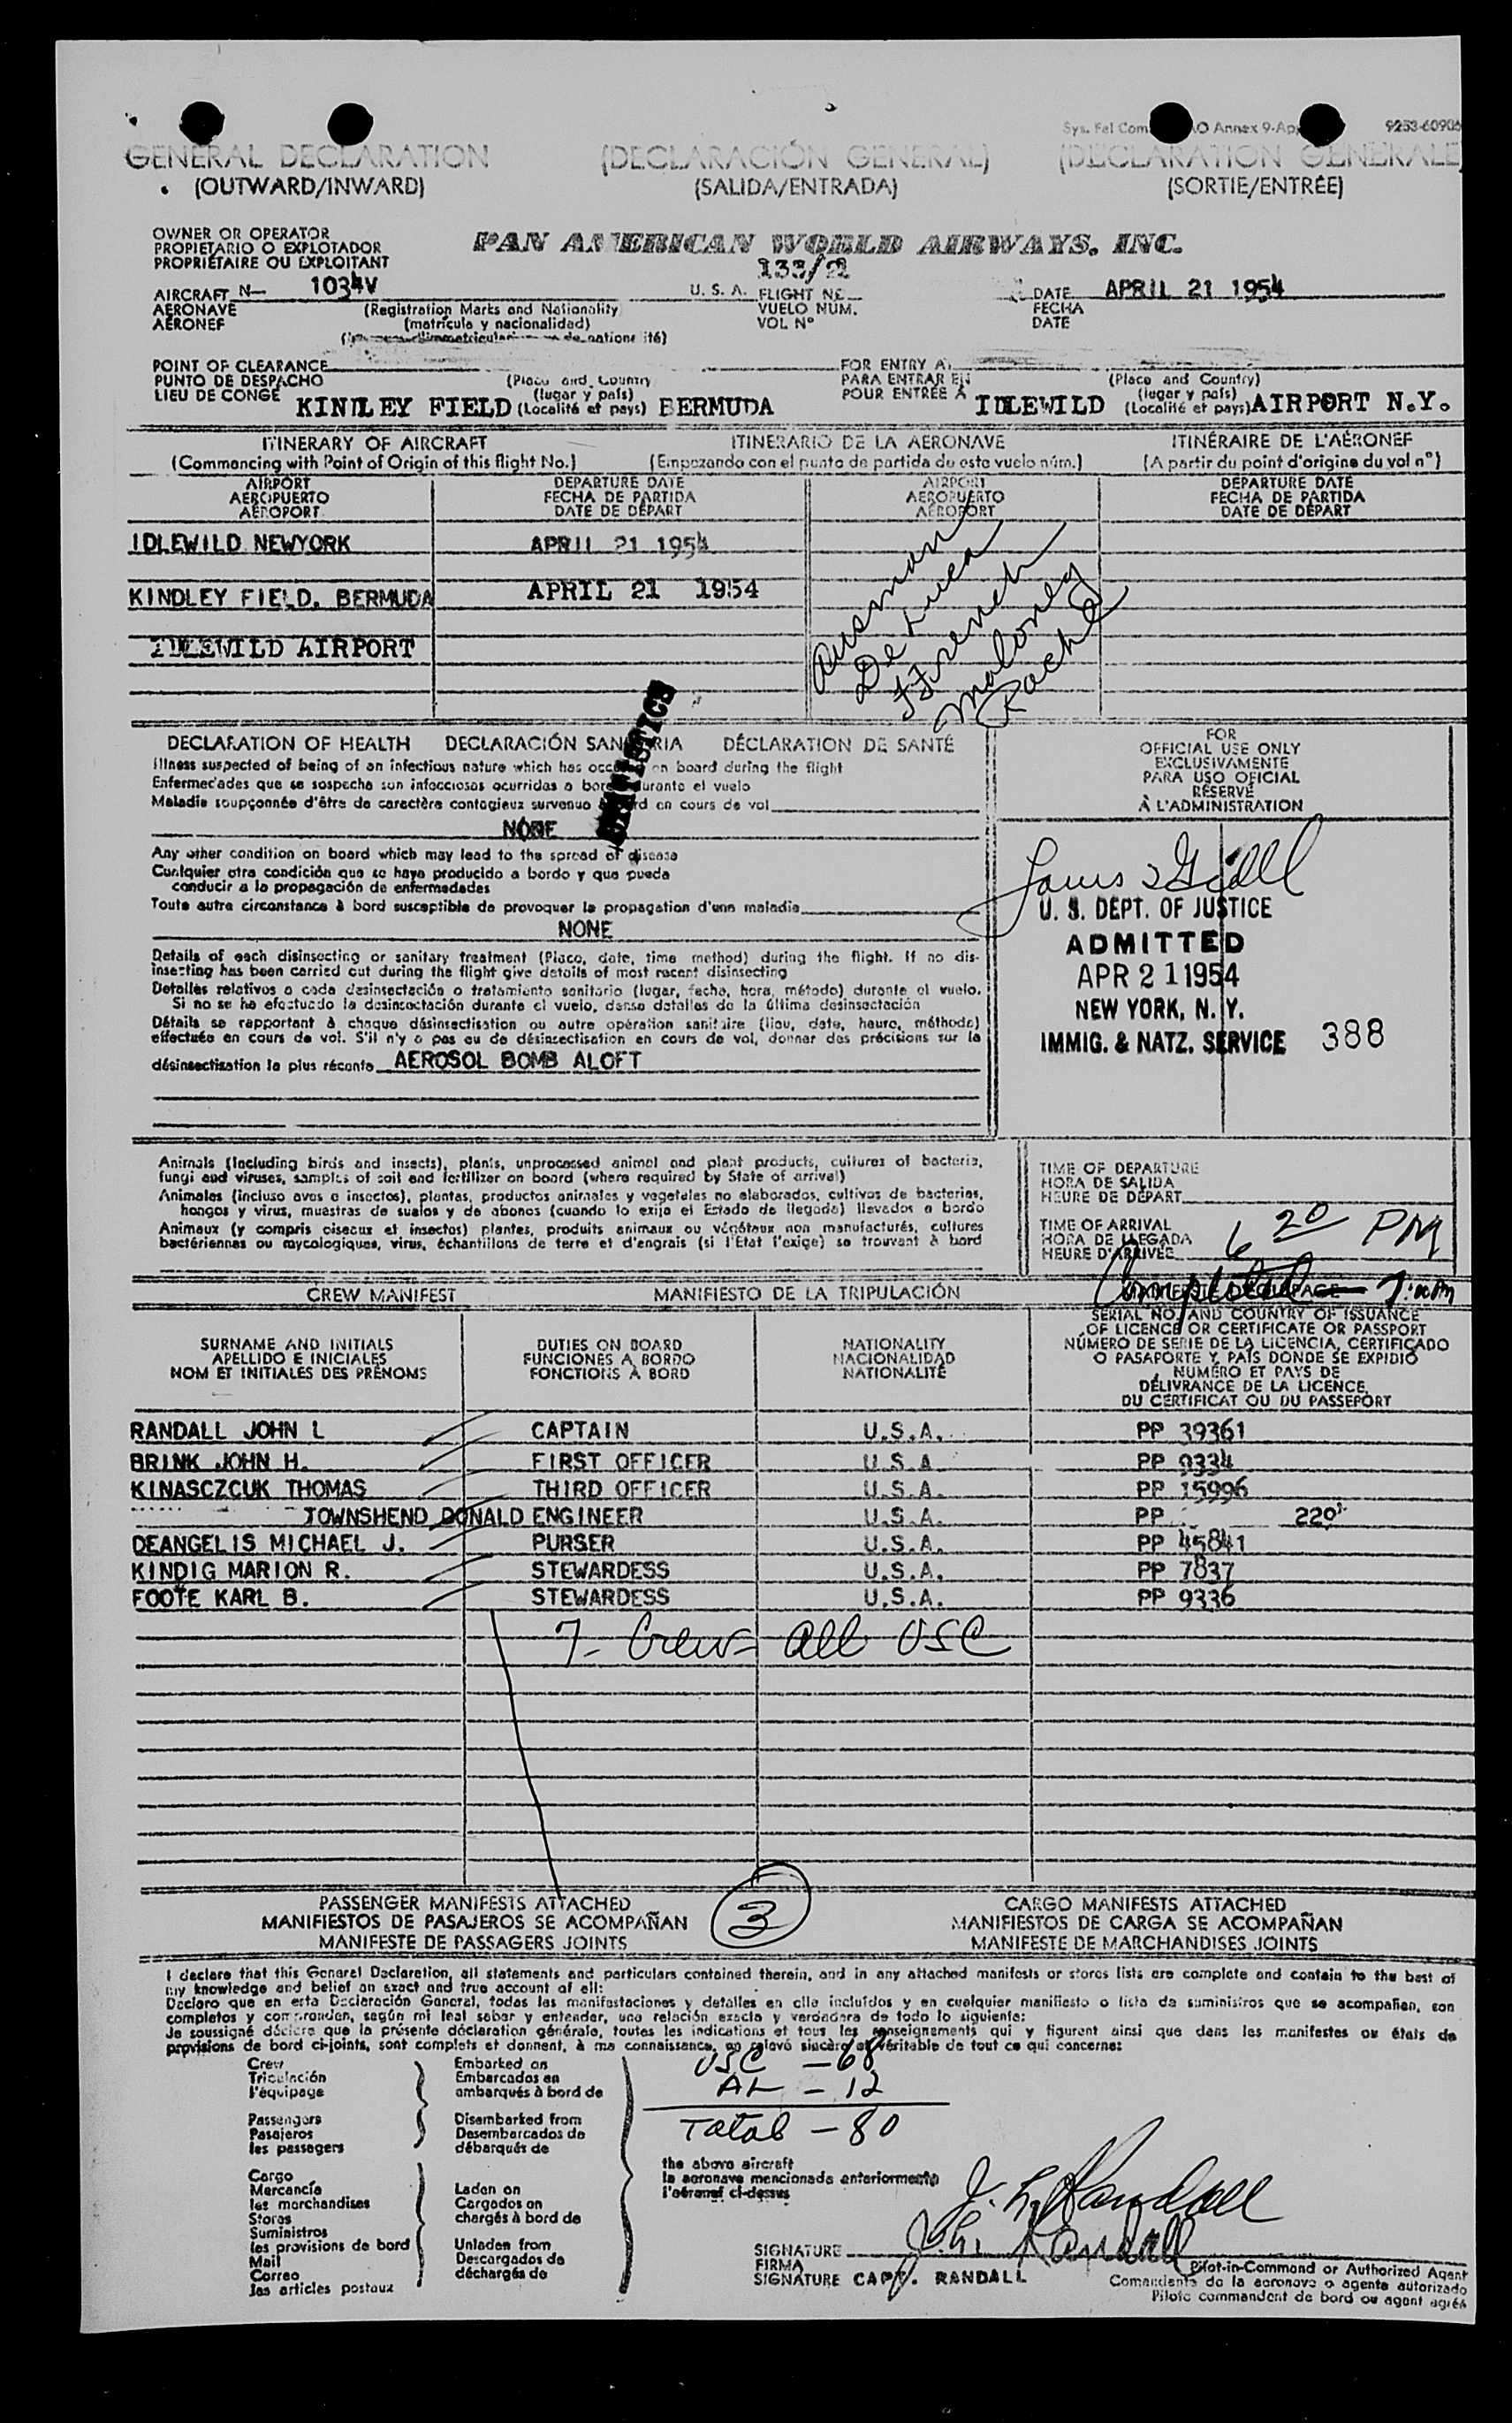 9253-6090
GENERAL DECLARATION (DECLARACIÓN GENERAL) (DECLARATION GENERALE)
(OUTWARD/INWARD) (SALIDA/ENTRADA) (SORTIE/ENTRÉE)
OWNER OR OPERATOR
PROPIETARIO O EXPLOTADOR
PROPRIÉTAIRE OU EXPLOITANT
PAN AMERICAN WORLD AIRWAYS, INC.
133/2
AIRCRAFT N— 1034V U. S. A. FLIGHT NO. DATE APRIL 21 1954
AERONAVE (Registration Marks and Nationality VUELO NUM. FECHA
AÉRONEF (matrícula y nacionalidad) VOL N° DATE
POINT OF CLEARANCE FOR ENTRY AT
PUNTO DE DESPACHO (Place and Country PARA ENTRAR EN (Place and Country)
LIEU DE CONGÉ KINDLEY FIELD (lugar y país) (Localité et pays) BERMUDA POUR ENTRÉE À IDLEWILD (lugar y país) (Localité et pays) AIRPORT N.Y.
ITINERARY OF AIRCRAFT ITINERARIO DE LA AERONAVE ITINÉRAIRE DE L'AÉRONEF
(Commencing with Point of Origin of this flight No.) (Empezando con el punto de partida de este vuelo núm.) (A partir du point d'origine du vol n°)
AIRPORT DEPARTURE DATE AIRPORT DEPARTURE DATE
AEROPUERTO FECHA DE PARTIDA AEROPUERTO FECHA DE PARTIDA
AÉROPORT DATE DE DÉPART AÉROPORT DATE DE DÉPART
IDLEWILD NEWYORK APRIL 21 1954
KINDLEY FIELD, BERMUDA APRIL 21 1954
IDLEWILD AIRPORT
De Luca
Ffrench
Maloney
Roche
STATISTICS
DECLARATION OF HEALTH DECLARACIÓN SANITARIA DÉCLARATION DE SANTÉ
Illness suspected of being of an infectious nature which has occurred on board during the flight
Enfermedades que se sospecha son infecciosas ocurridas a bordo durante el vuelo
Maladie soupçonnée d'être de caractère contagieux survenue à bord en cours de vol
NONE
Any other condition on board which may lead to the spread of disease
Cualquier otra condición que se haya producido a bordo y que pueda
conducir a la propagación de enfermedades
Toute autre circonstance à bord susceptible de provoquer la propagation d'une maladie
NONE
Details of each disinsecting or sanitary treatment (Place, date, time method) during the flight. If no dis-
insecting has been carried out during the flight give details of most recent disinsecting
Detalles relativos a cada desinsectación o tratamiento sanitario (lugar, fecha, hora, método) durante el vuelo.
Si no se ha efectuado la desinsectación durante el vuelo, dense detalles de la última desinsectación
Détails se rapportant à chaque désinsectisation ou autre opération sanitaire (lieu, date, heure, méthode)
effectuée en cours de vol. S'il n'y a pas eu de désinsectisation en cours de vol, donner des précisions sur la
désinsectisation la plus récente AEROSOL BOMB ALOFT
FOR
OFFICIAL USE ONLY
EXCLUSIVAMENTE
PARA USO OFICIAL
RÉSERVÉ
À L'ADMINISTRATION
U. S. DEPT. OF JUSTICE
ADMITTED
APR 21 1954
NEW YORK, N. Y.
IMMIG. & NATZ. SERVICE 388
Animals (Including birds and insects), plants, unprocessed animal and plant products, cultures of bacteria,
fungi and viruses, samples of soil and fertilizer on board (where required by State of arrival)
Animales (incluso aves e insectos), plantas, productos animales y vegetales no elaborados, cultivos de bacterias,
hongos y virus, muestras de suelos y de abonos (cuando lo exija el Estado de llegada) llevados a bordo
Animaux (y compris oiseaux et insectes) plantes, produits animaux ou végétaux non manufacturés, cultures
bactériennes ou mycologiques, virus, échantillons de terre et d'engrais (si l'Etat l'exige) se trouvant à bord
TIME OF DEPARTURE
HORA DE SALIDA
HEURE DE DÉPART
TIME OF ARRIVAL
HORA DE LLEGADA
HEURE D'ARRIVÉE 6 20 PM
Completed — 7:00 PM
CREW MANIFEST MANIFIESTO DE LA TRIPULACIÓN
SURNAME AND INITIALS DUTIES ON BOARD NATIONALITY
APELLIDO E INICIALES FUNCIONES A BORDO NACIONALIDAD
NOM ET INITIALES DES PRÉNOMS FONCTIONS À BORD NATIONALITÉ
SERIAL NO. AND COUNTRY OF ISSUANCE
OF LICENCE OR CERTIFICATE OR PASSPORT
NÚMERO DE SERIE DE LA LICENCIA, CERTIFICADO
O PASAPORTE Y PAÍS DONDE SE EXPIDIÓ
NUMÉRO ET PAYS DE
DÉLIVRANCE DE LA LICENCE,
DU CERTIFICAT OU DU PASSEPORT
RANDALL JOHN L CAPTAIN U.S.A. PP 39361
BRINK JOHN H. FIRST OFFICER U.S.A PP 9334
KINASCZCUK THOMAS THIRD OFFICER U.S.A. PP 15996
TOWNSHEND DONALD ENGINEER U.S.A. PP
DEANGELIS MICHAEL J. PURSER U.S.A. PP 45841
KINDIG MARION R. STEWARDESS U.S.A. PP 7837
FOOTE KARL B. STEWARDESS U.S.A. PP 9336
7- Crew- all USC
PASSENGER MANIFESTS ATTACHED 3 CARGO MANIFESTS ATTACHED
MANIFIESTOS DE PASAJEROS SE ACOMPAÑAN MANIFIESTOS DE CARGA SE ACOMPAÑAN
MANIFESTE DE PASSAGERS JOINTS MANIFESTE DE MARCHANDISES JOINTS
I declare that this General Declaration, all statements and particulars contained therein, and in any attached manifests or stores lists are complete and contain to the best of
my knowledge and belief an exact and true account of all:
Declaro que en esta Declaración General, todas las manifestaciones y detalles en ella incluídos y en cualquier manifiesto o lista de suministros que se acompañen, son
completos y comprenden, según mi leal saber y entender, una relación exacta y verdadera de todo lo siguiente:
Je soussigné déclare que la présente déclaration générale, toutes les indications et tous les renseignements qui y figurent ainsi que dans les manifestes ou états de
provisions de bord ci-joints, sont complets et donnent, à ma connaissance, un relevé sincère et véritable de tout ce qui concerne:
Crew Embarked on USC — 68
Tripulación Embarcados en AL — 12
l'équipage embarqués à bord de
Passengers Disembarked from Total — 80
Pasajeros Desembarcados de
les passagers débarqués de
the above aircraft
la aeronave mencionada anteriormente
l'aéronef ci-dessus
Cargo
Mercancía Laden on
les marchandises Cargados en
Stores chargés à bord de
Suministros
les provisions de bord Unladen from
Mail Descargados de
Correo déchargés de
les articles postaux
J. L. Randall
J. L. Randall
SIGNATURE Pilot-in-Command or Authorized Agent
FIRMA Comandante de la aeronave o agente autorizado
SIGNATURE CAPT. RANDALL Pilote commandant de bord ou agent agréé